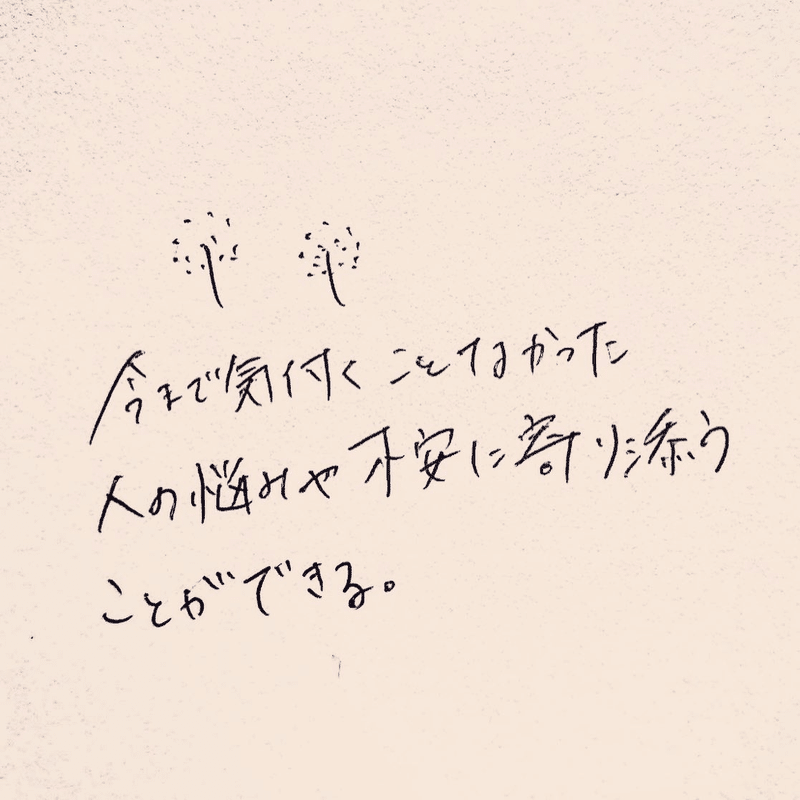 今まで気付くことなかった
人の悩みや不安に寄り添う
ことができる。